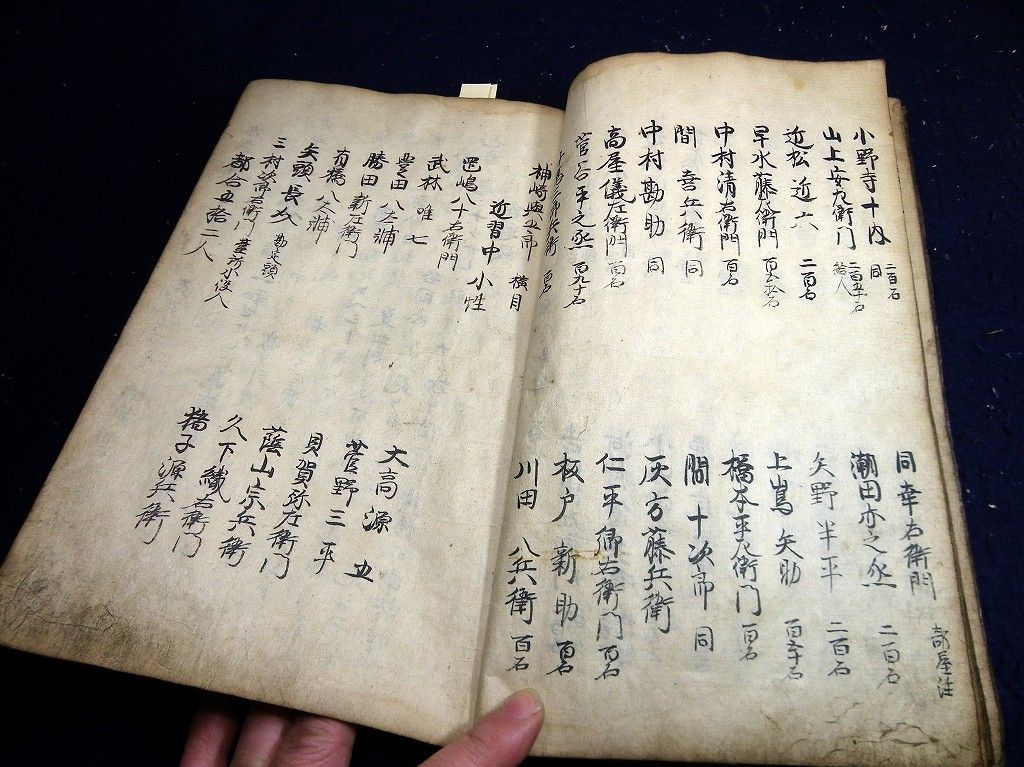 小野寺十内 二百石
同幸右衛門 部屋住
山上安左衛門 同
潮田亦之丞 二百石
近松近六 二百五十石
矢野半平 二百石
早水藤左衛門 百五拾石
上嶌矢助 百五十石
中村清右衛門 百石
橋本平左衛門 百石
間喜兵衛 同
間十次郎 同
中村勘助 同
灰方藤兵衛
高屋儀左衛門 百石
仁平郷右衛門 百石
菅谷半之丞 百九十石
板户新助 百石
百石
川田八兵衛 百石
横目
近習中小性
大高源五
武林唯七
菅野三平
豊田八太浦
貝賀弥左衛門
勝田新左衛門
蔭山宗兵衛
有橋久浦
久下織右衛門
矢頭長介 勘定頭
橋子源兵衛
三村次郎右衛門 台所小役人
都合五拾二人